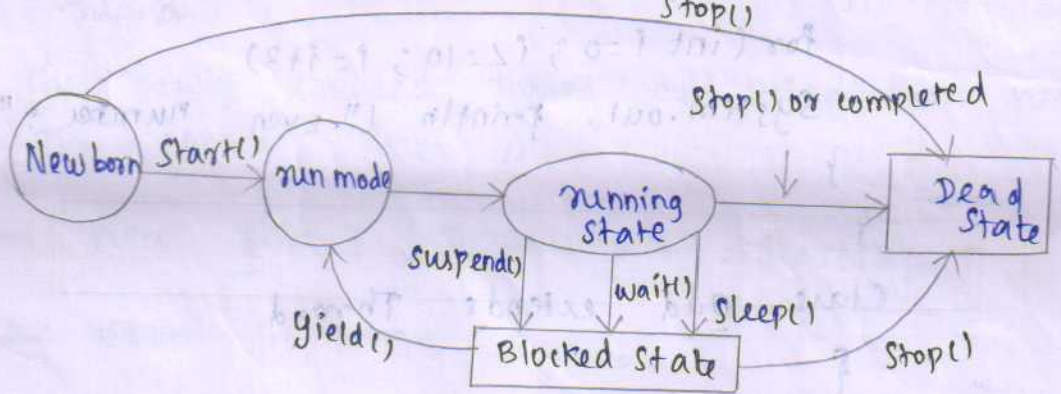 Stop()
Stop() or completed
New born
Start()
run mode
running
state
Dead
State
suspend()
wait()
Sleep()
yield()
Blocked State
Stop()